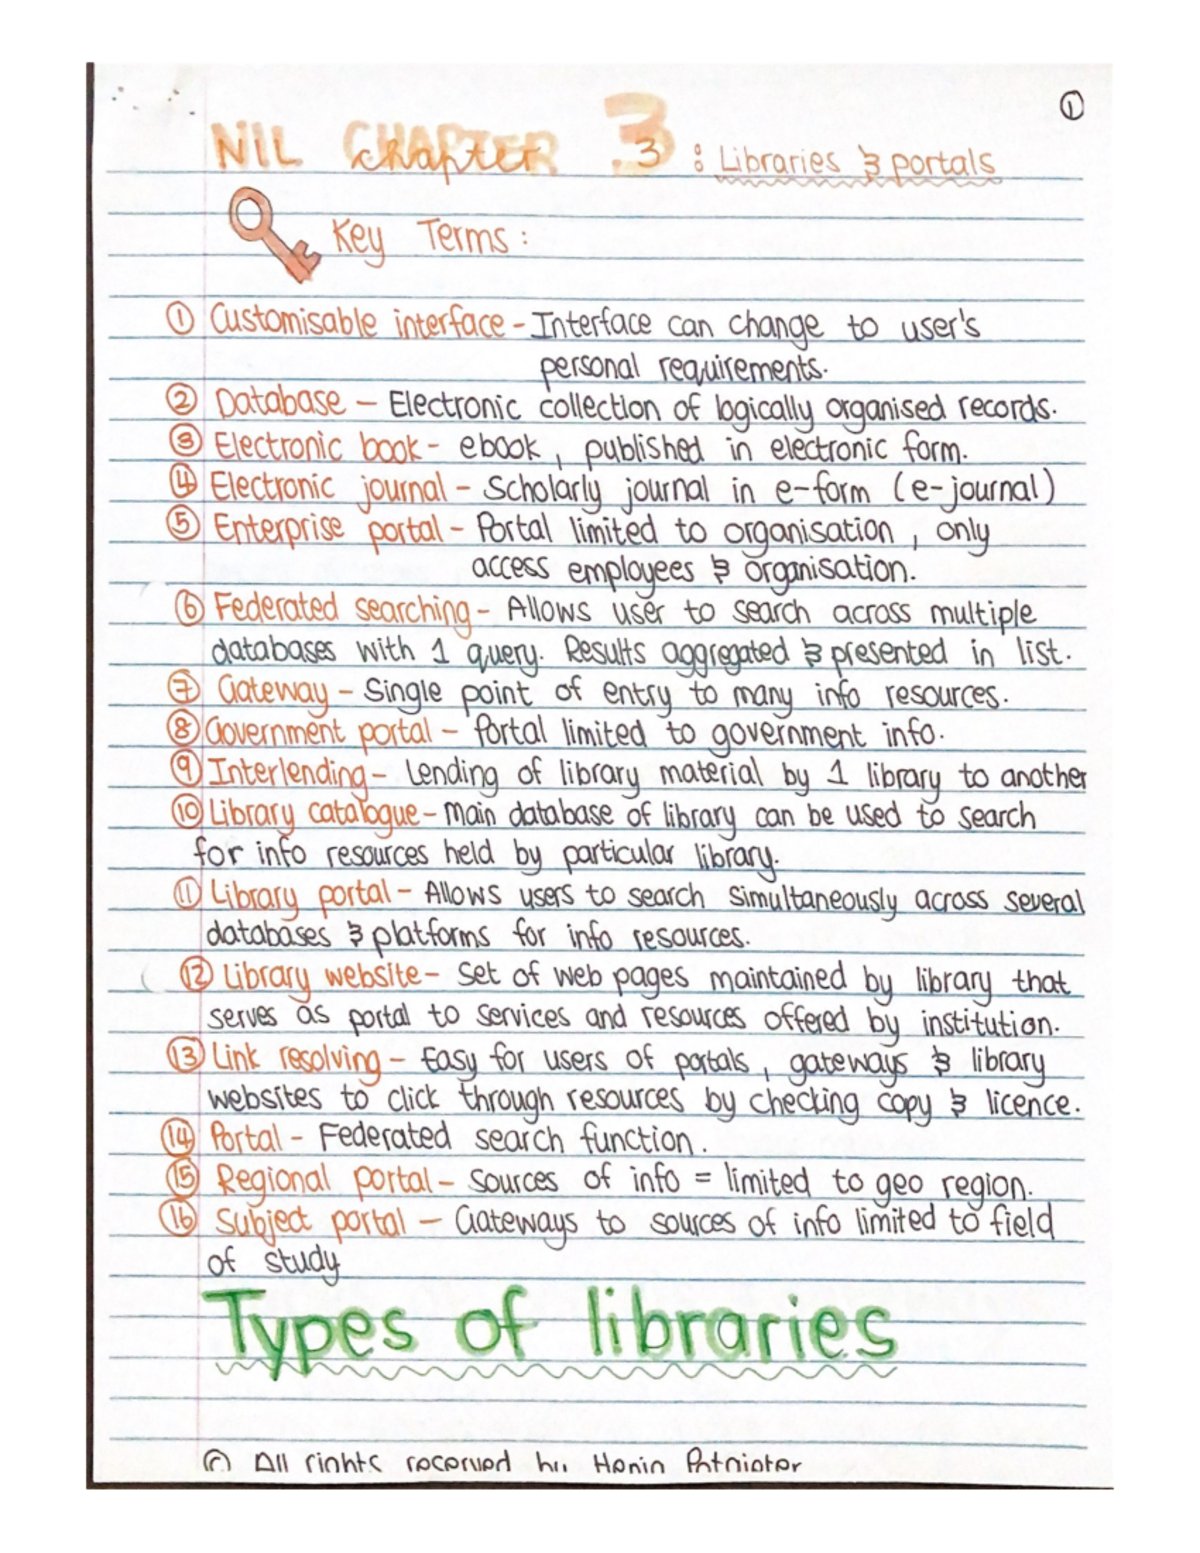 ①
NIL CHAPTER chapter 3 3 : Libraries & portals
Key Terms :
① Customisable interface - Interface can change to user's
personal requirements.
② Database – Electronic collection of logically organised records.
③ Electronic book - ebook , published in electronic form.
④ Electronic journal - Scholarly journal in e-form (e-journal)
⑤ Enterprise portal - Portal limited to organisation , only
access employees & organisation.
⑥ Federated searching - Allows user to search across multiple
databases with 1 query. Results aggregated & presented in list.
⑦ Gateway - Single point of entry to many info resources.
⑧ Government portal - Portal limited to government info.
⑨ Interlending - Lending of library material by 1 library to another
⑩ Library catalogue - main database of library can be used to search
for info resources held by particular library.
⑪ Library portal - Allows users to search simultaneously across several
databases & platforms for info resources.
⑫ Library website - Set of web pages maintained by library that
serves as portal to services and resources offered by institution.
⑬ Link resolving - Easy for users of portals , gateways & library
websites to click through resources by checking copy & licence.
⑭ Portal - Federated search function.
⑮ Regional portal - sources of info = limited to geo region.
⑯ Subject portal - Gateways to sources of info limited to field
of study
Types of libraries
© All rights reserved by